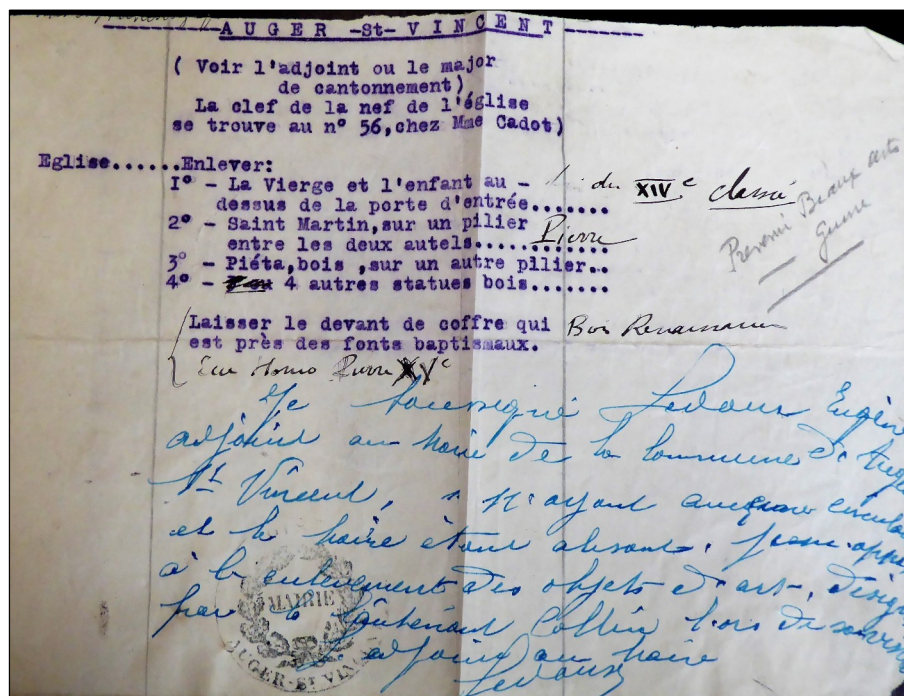 AUGER -St- VINCENT
( Voir l'adjoint ou le major
de cantonnement)
La clef de la nef de l'église
se trouve au n° 56,chez Mme Cadot)
Eglise......Enlever:
I° - La Vierge et l'enfant au - du XIVe classé
dessus de la porte d'entrée.......
2° - Saint Martin,sur un pilier
entre les deux autels........ Pierre
3° - Piéta,bois ,sur un autre pilier..
4° - 4 autres statues bois.......
Prévenir Beaux arts
Laisser le devant de coffre qui Bois Renaissance
est près des fonts baptismaux.
Ecce Homo Pierre XVe
Je soussigné Ledoux Eugène
adjoint au maire de la commune d'Auger
St Vincent, n'ayant aucune
et le maire étant absent,
à l'enlèvement des objets d'art,
par le Lieutenant Collin lors de
L'adjoint au maire
Ledoux
MAIRIE
AUGER-ST VINCENT